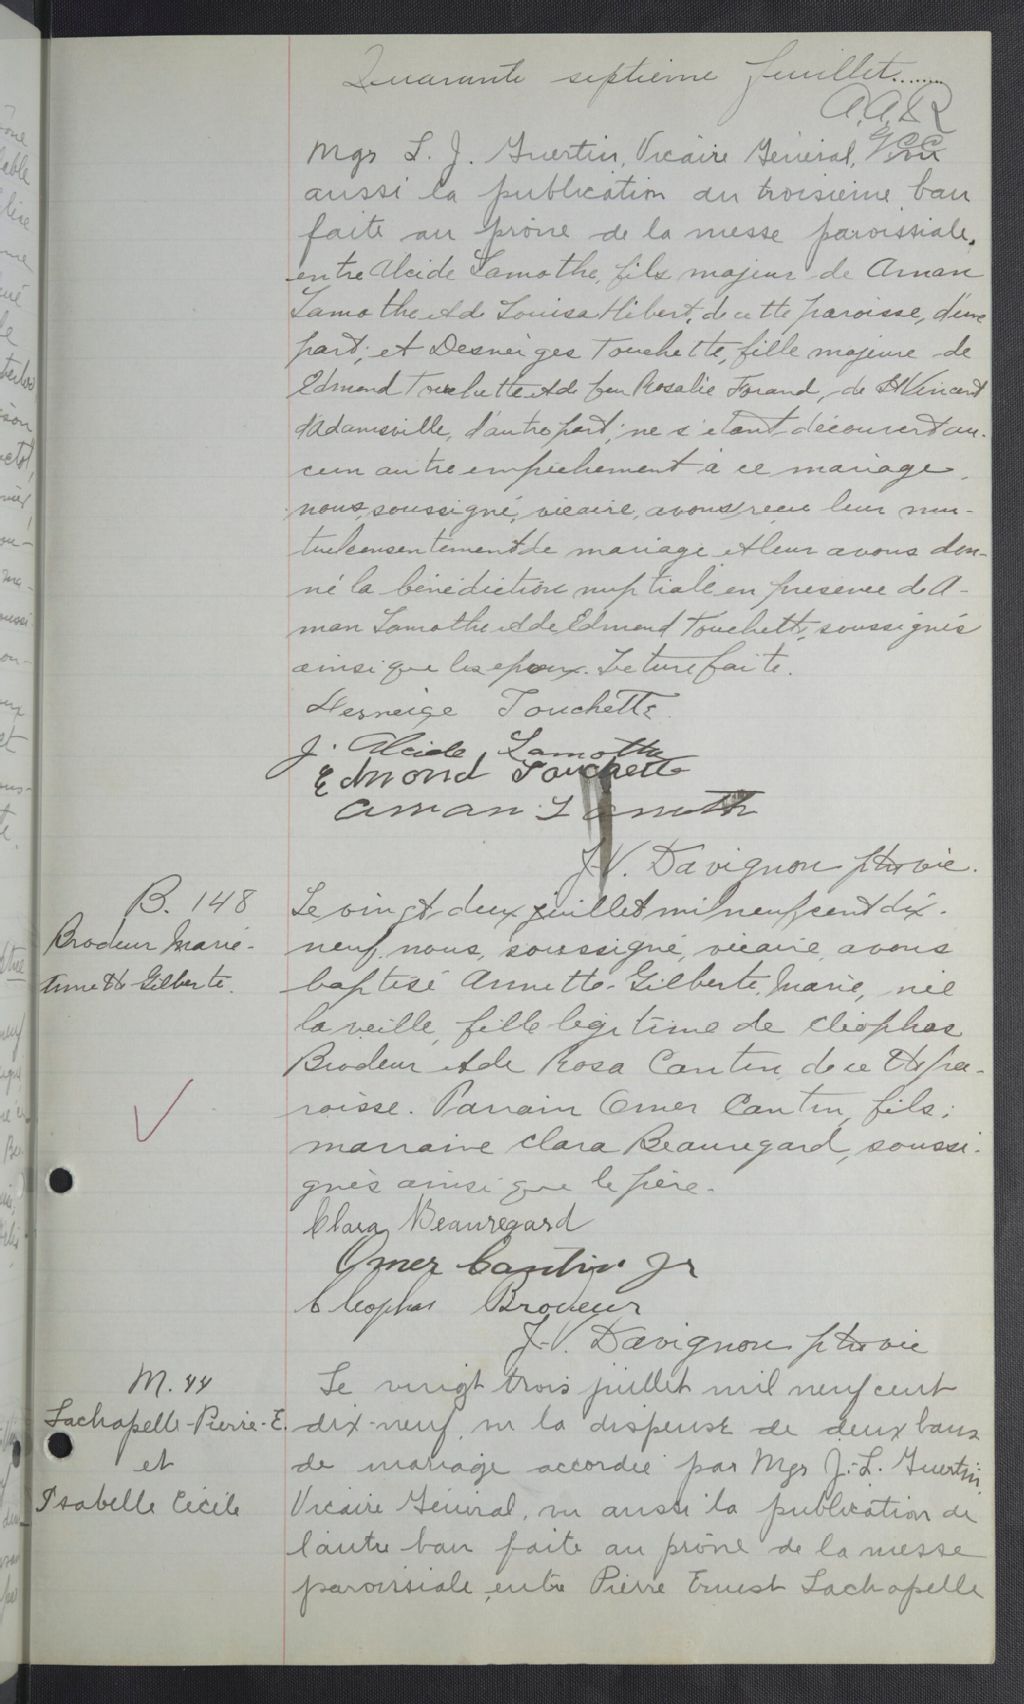 Quarante septième feuillet........
A.A.&R
G.C.C.
Mgr L. J. Guertin, Vicaire Général, vu
aussi la publication du troisième ban
faite au prône de la messe paroissiale,
entre Alcide Lamothe, fils majeur de Aman
Lamothe et de Louisa Hébert, de cette paroisse, d'une
part; et Desneiges Touchette, fille majeure de
Edmond Touchette et de feu Rosalie Forand, de St Vincent
d'Adamsville, d'autre part; ne s'étant découvert au-
cun autre empêchement à ce mariage,
nous, soussigné, vicaire, avons reçu leur mu-
tuel consentement de mariage et leur avons don-
né la bénédiction nuptiale en présence de A-
man Lamothe et de Edmond Touchette, soussignés
ainsi que les époux. Lecture faite.
Desneige Touchette
J. Alcide Lamothe
Edmond Touchette
Aman Lamothe
J.V. Davignon ptre vic.
B. 148
Brodeur Marie-
Annette-Gilberte.
Le vingt-deux juillet mil neuf cent dix-
neuf, nous, soussigné, vicaire, avons
baptisé Annette-Gilberte, Marie, née
la veille, fille légitime de Cléophas
Brodeur et de Rosa Cantin, de cette pa-
roisse. Parrain Omer Cantin, fils;
marraine Clara Beauregard, soussi-
gnés ainsi que le père.
Clara Beauregard
Omer Cantin Jr
Cleophas Brodeur
J.-V. Davignon ptre vic
M. 44
Lachapelle-Pierre-E.
et
Isabelle Cécile
Le vingt trois juillet mil neuf cent
dix-neuf, vu la dispense de deux bans
de mariage accordée par Mgr J.-L. Guertin,
Vicaire Général, vu aussi la publication de
l'autre ban faite au prône de la messe
paroissiale, entre Pierre Ernest Lachapelle